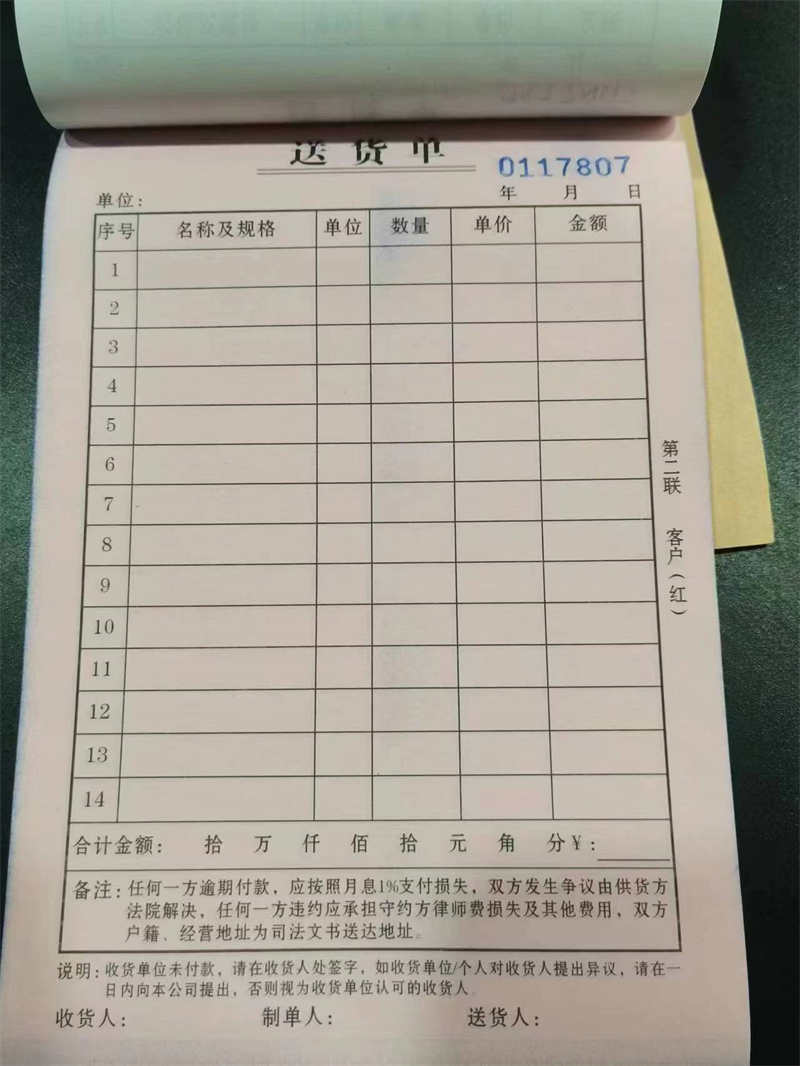 送货单
0117807
单位： 年 月 日
序号 名称及规格 单位 数量 单价 金额
1
2
3
4
5
6
7
8
9
10
11
12
13
14
合计金额： 拾 万 仟 佰 拾 元 角 分￥：
备注：任何一方逾期付款，应按照月息1%支付损失，双方发生争议由供货方
法院解决，任何一方违约应承担守约方律师费损失及其他费用，双方
户籍、经营地址为司法文书送达地址。
说明：收货单位未付款，请在收货人处签字，如收货单位/个人对收货人提出异议，请在一
日内向本公司提出，否则视为收货单位认可的收货人
收货人： 制单人： 送货人：
第二联 客户（红）